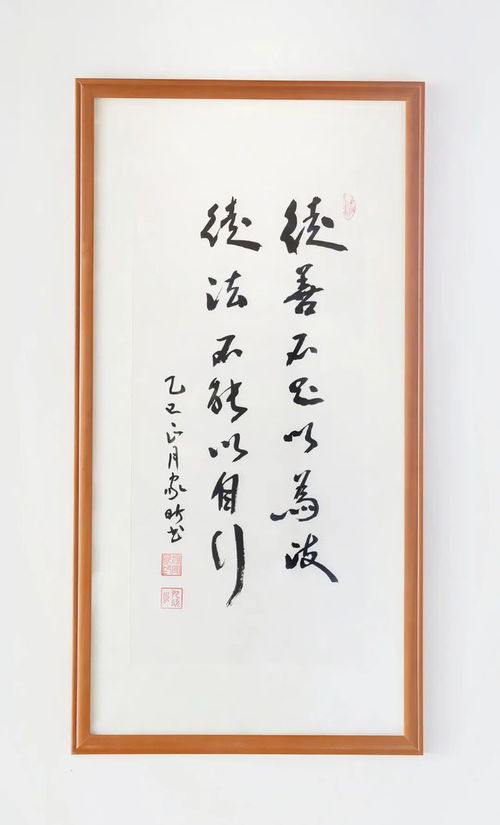 徒善不足以為政
徒法不能以自行
乙巳正月家昕书